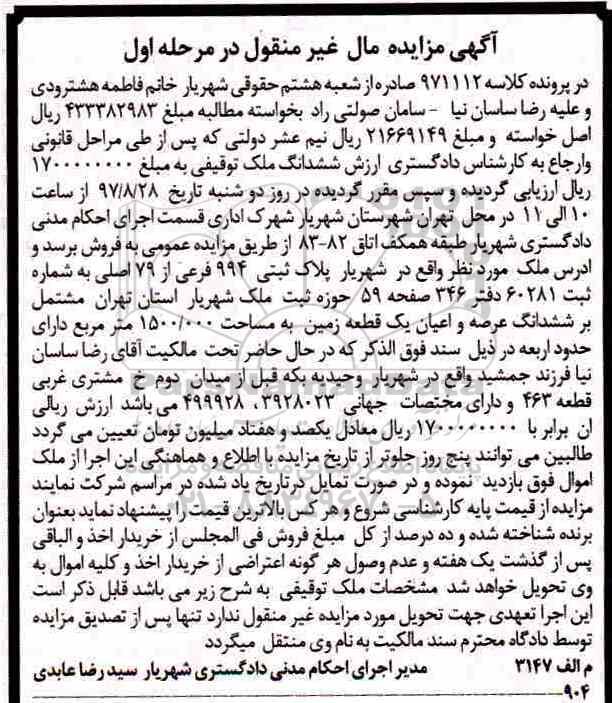 آگهی مزایده مال غیر منقول در مرحله اول
در پرونده کلاسه ۹۷۱۱۱۲ صادره از شعبه هشتم حقوقی شهریار خانم فاطمه هشترودی
و علیه رضا ساسان نیا - سامان صولتی راد بخواسته مطالبه مبلغ ۴۳۳۳۸۲۹۸۳ ریال
اصل خواسته و مبلغ ۲۱۶۶۹۱۴۹ ریال نیم عشر دولتی که پس از طی مراحل قانونی
وارجاع به کارشناس دادگستری ارزش ششدانگ ملک توقیفی به مبلغ ۱۷۰۰۰۰۰۰۰۰
ریال ارزیابی گردیده و سپس مقرر گردیده در روز دو شنبه تاریخ ۹۷/۸/۲۸ از ساعت
۱۰ الی ۱۱ در محل تهران شهرستان شهریار شهرک اداری قسمت اجرای احکام مدنی
دادگستری شهریار طبقه همکف اتاق ۸۲-۸۳ از طریق مزایده عمومی به فروش برسد و
ادرس ملک مورد نظر واقع در شهریار پلاک ثبتی ۹۹۴ فرعی از ۷۹ اصلی به شماره
ثبت ۶۰۲۸۱ دفتر ۳۴۶ صفحه ۵۹ حوزه ثبت ملک شهریار استان تهران مشتمل
بر ششدانگ عرصه و اعیان یک قطعه زمین به مساحت ۱۵۰۰/۰۰۰ متر مربع دارای
حدود اربعه در ذیل سند فوق الذکر که در حال حاضر تحت مالکیت آقای رضا ساسان
نیا فرزند جمشید واقع در شهریار وحیدیه بکه قبل از میدان دوم خ مشتری غربی
قطعه ۴۶۳ و دارای مختصات جهانی ۳۹۲۸۰۲۳، ۴۹۹۹۲۸ می باشد ارزش ریالی
ان برابر با ۱۷۰۰۰۰۰۰۰۰ ریال معادل یکصد و هفتاد میلیون تومان تعیین می گردد
طالبین می توانند پنج روز جلوتر از تاریخ مزایده با اطلاع و هماهنگی این اجرا از ملک
اموال فوق بازدید نموده و در صورت تمایل در تاریخ یاد شده در مراسم شرکت نمایند
مزایده از قیمت پایه کارشناسی شروع و هر کس بالاترین قیمت را پیشنهاد نماید بعنوان
برنده شناخته شده و ده درصد از کل مبلغ فروش فی المجلس از خریدار اخذ و الباقی
پس از گذشت یک هفته و عدم وصول هر گونه اعتراضی از خریدار اخذ و کلیه اموال به
وی تحویل خواهد شد مشخصات ملک توقیفی به شرح زیر می باشد قابل ذکر است
این اجرا تعهدی جهت تحویل مورد مزایده غیر منقول ندارد تنها پس از تصدیق مزایده
توسط دادگاه محترم سند مالکیت به نام وی منتقل میگردد
م الف ۳۱۴۷ مدیر اجرای احکام مدنی دادگستری شهریار سید رضا عابدی
۹۰۴